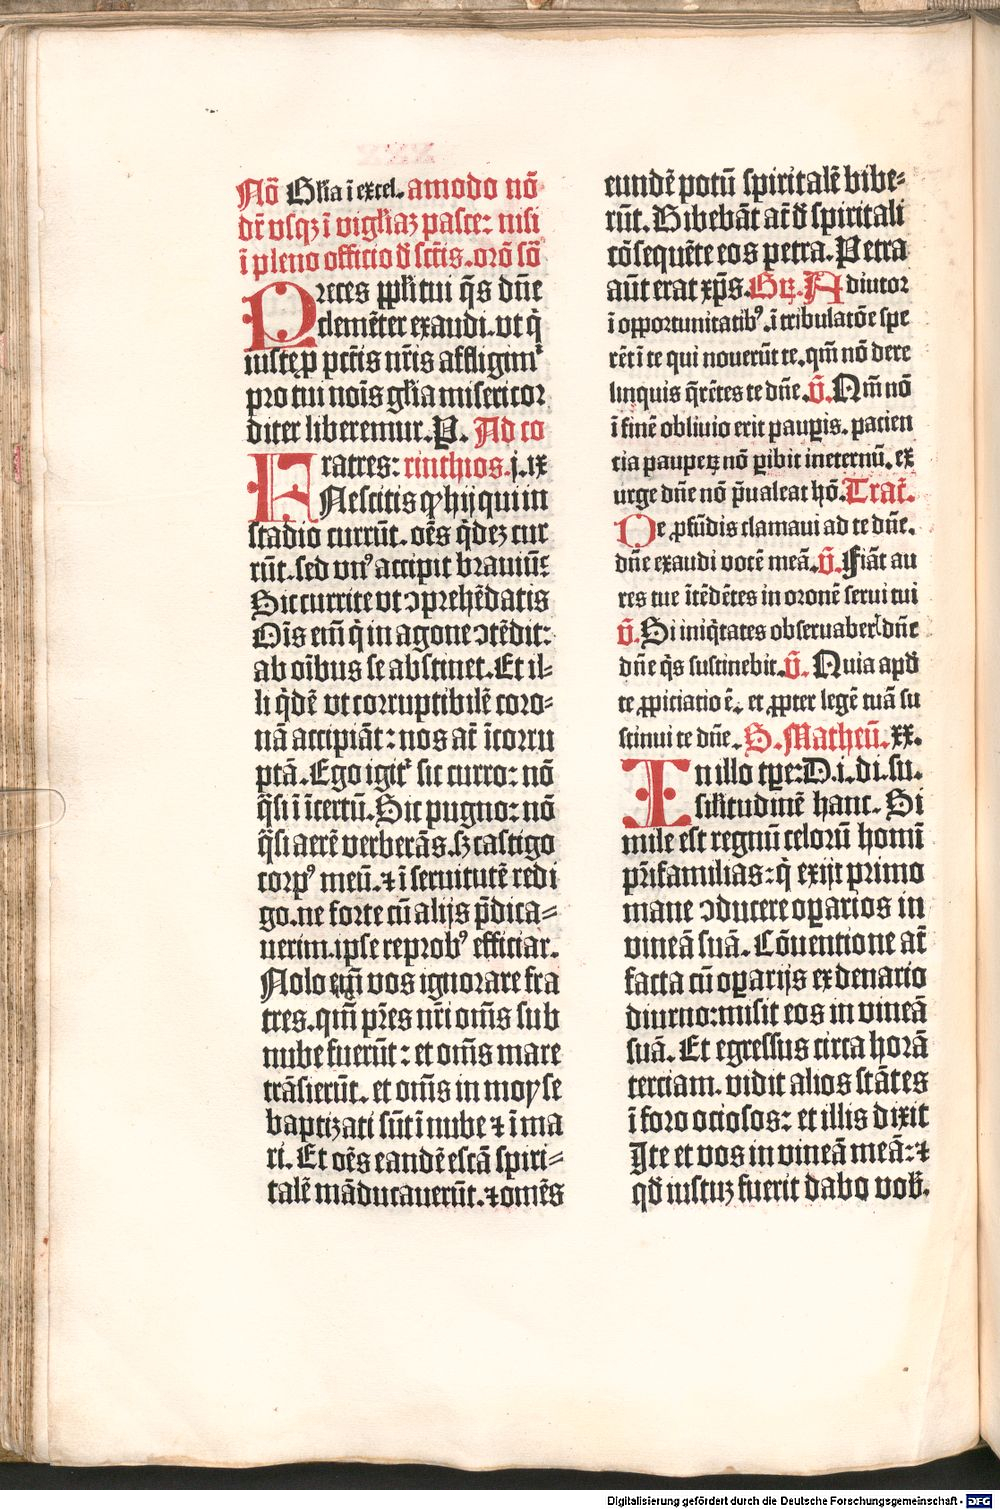 Nō Gl̄ia ī excel. amodo nō
dr̄ vsqꝫ ī vigl̄iaꝫ pasce: nisi
ī pleno officio đ sctīs. orō sō
Preces ppl̄i tui q̄s dn̄e
clemēter exaudi. vt q̇
iuste ꝓ pctīs nr̄is affligimꝰ
pro tui noīs gl̄ia misericor
diter liberemur. P. Ad co
Fratres: rinthios. j. ix
Nescitis ꝙ hij qui in
stadio currūt. oēs q̇deꝫ cur
rūt. sed vnꝰ accipit brauiū:
Sic currite vt ꝯprehēdatis
Oīs em̄ q̇ in agone ꝯtēdit:
ab oībus se abstinet. Et il-
li q̇dē vt corruptibilē coro-
nā accipiāt: nos at̄ īcorru
ptā. Ego igit̄ sic curro: nō
q̄si ī īcertū. Sic pugno: nō
q̄si aerē verberās. sꝫ castigo
corpꝰ meū. ⁊ ī seruitutē redi
go. ne forte cū alijs p̄dica-
uerim. ipse reprobꝰ efficiar.
Nolo em̄ vos ignorare fra
tres. qm̄ pr̄es nr̄i om̄s sub
nube fuerūt: et om̄s mare
trāsierūt. et om̄s in moyse
baptizati sūt ī nube ⁊ ī ma
ri. Et oēs eandē escā spiri-
talē māducauerūt. ⁊ omēs
eundē potū spiritalē bibe-
rūt. Bibebāt at̄ đ spiritali
cōsequēte eos petra. Petra
aūt erat xp̄s. Gꝝ. Adiutor
ī opportunitatibꝰ. ī tribulatōe spe
rēt ī te qui nouerūt te. qm̄ nō dere
linquis q̄rētes te dn̄e. v̄. Qm̄ nō
ī finē obliuio erit paupis. pacien
tia pauperꝝ nō pibit ineternū. ex
urge dn̄e nō p̄ualeat hō. Tract̄.
De ꝓfūdis clamaui ad te dn̄e.
dn̄e exaudi vocē meā. v̄. Fiāt au
res tue ītēdētes in oronē serui tui
v̄. Si iniq̇tates obseruaber̄ dn̄e
dn̄e q̇s sustinebit. v̄. Quia apđ
te ꝓpiciatio ē. et ꝓpter legē tuā su
stinui te dn̄e. S. Matheū. xx.
In illo tp̄e: D. i. di. su.
silitudinē hanc. Si
mile est regnū celorū homī
pr̄ifamilias: q̇ exijt primo
mane ꝯducere oparios in
vineā suā. Cōuentione at̄
facta cū oparijs ex denario
diurno: misit eos in vineā
suā. Et egressus circa horā
terciam. vidit alios stātes
ī foro ociosos: et illis dixit
Ite et vos in vineā meā: ⁊
qđ iustuꝫ fuerit dabo vob̄.
Digitalisierung gefördert durch die Deutsche Forschungsgemeinschaft - DFG